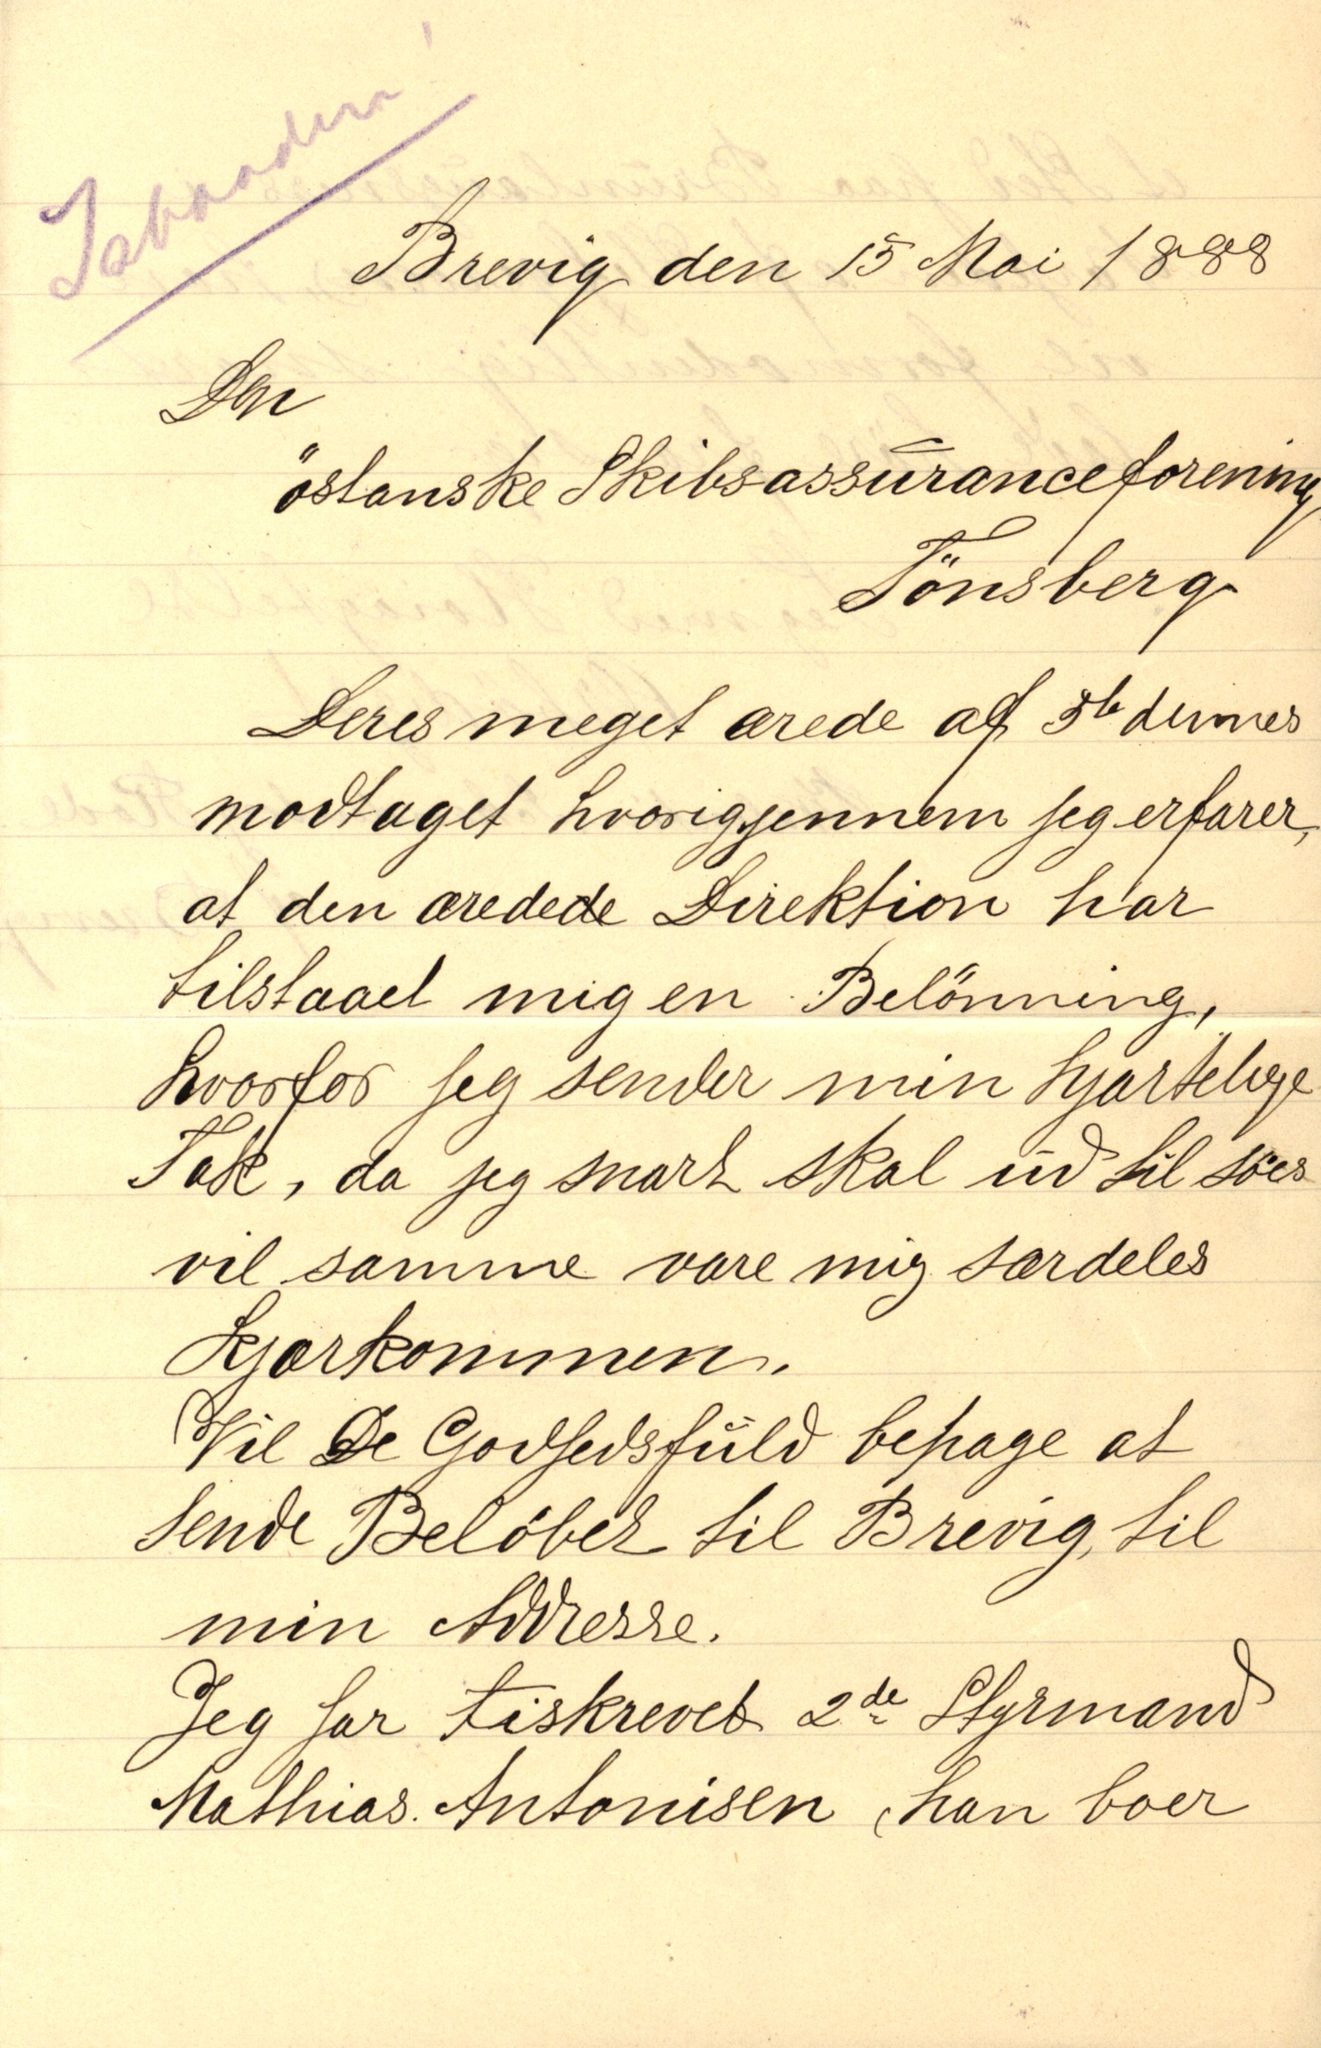 Brevig den 15 Mai 1888
Den
östanske Skibsassüranceforening
Tönsberg
Deres meget ærede af 5te dennes
modtaget hvorigjennem jeg erfarer,
at den æredede Direktion har
tilstaaet mig en Belönning,
hvorfor jeg sender min hjærtelige
Tak, da jeg snart skal üd til söes
vil samme være mig særdeles
kjærkommen.
Vil De Godhedsfüld behage at
sende Belöbet til Brevig, til
min Addresse.
Jeg har tiskrevet 2de Styrmand
Mathias Antonisen, han boer